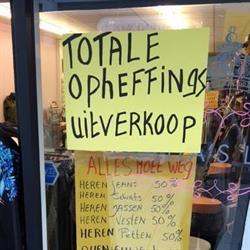 TOTALE
OPHEFFINGS
UITVERKOOP
ALLES MOET WEG
HEREN jeans 50%
HEREN Shirts 50%
HEREN JASSEN 50%
HEREN VESTEN 50%
HEREN Petten 50%